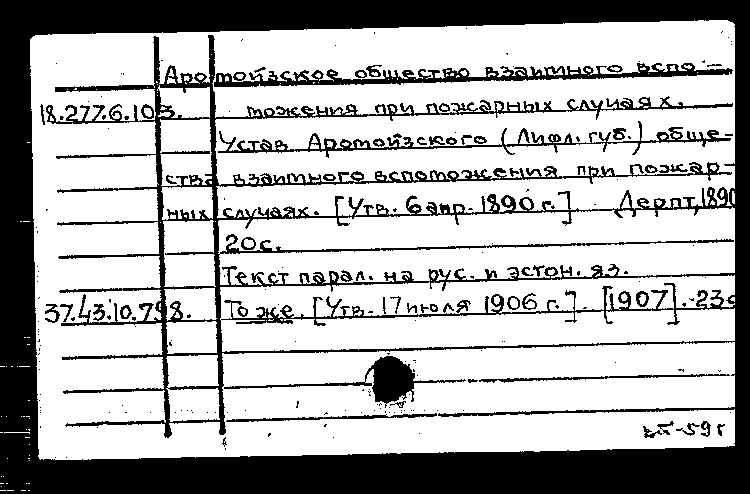 Аромойзское общество взаимного вспо-
18.277.6.103. можения при пожарных случаях.
Устав Аромойзского (Лифл. губ.) обще-
ства взаимного вспоможения при пожар-
ных случаях. [Утв. 6 апр. 1890 г.] Дерпт, 1890
20 с.
Текст парал. на рус. и эстон. яз.
37.43.10.798. То же. [Утв. 17 июля 1906 г.]. [1907]. 23 с